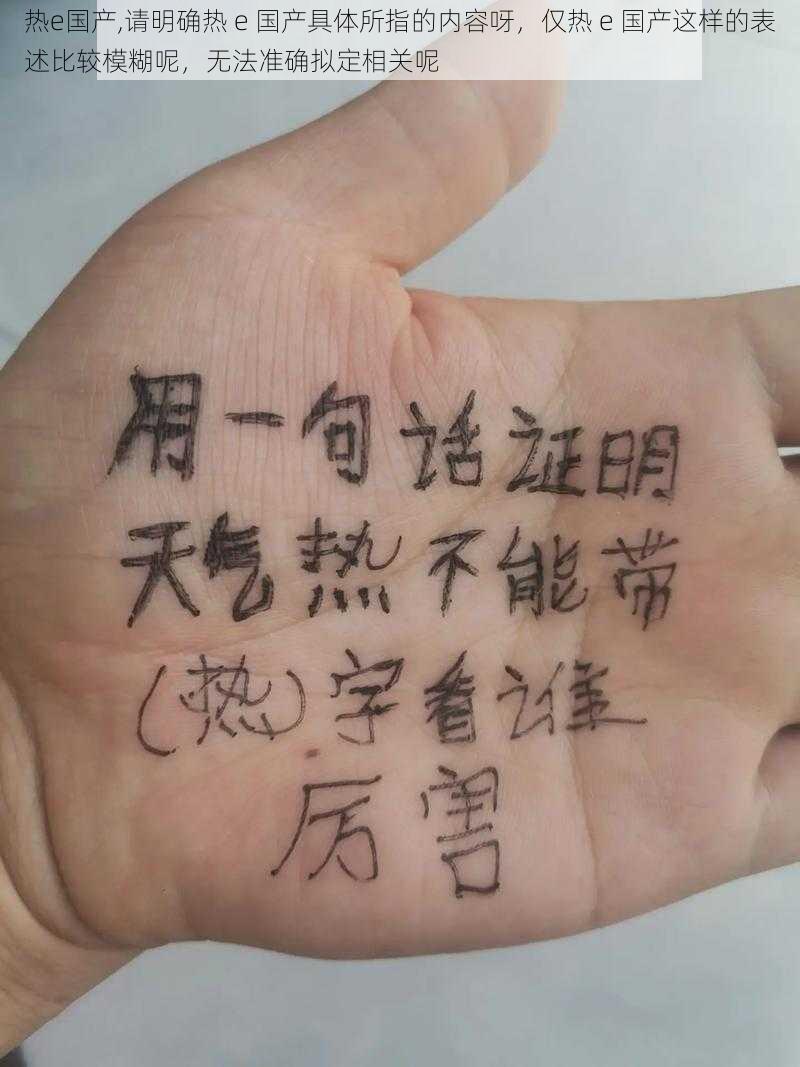 热e国产,请明确热 e 国产具体所指的内容呀，仅热 e 国产这样的表
述比较模糊呢，无法准确拟定相关呢
用一句话证明
天气热不能带
(热)字看谁
厉害